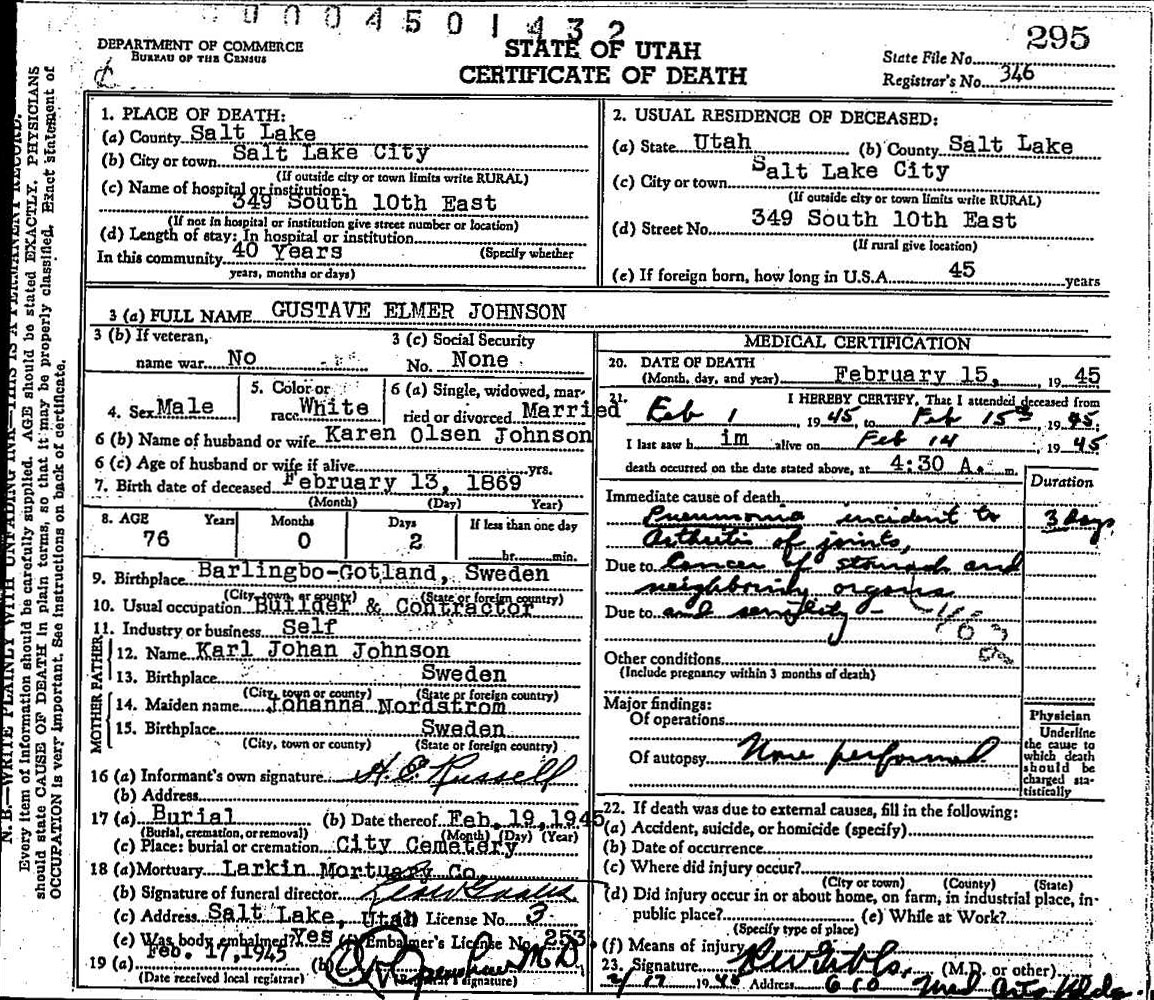 0004501432
DEPARTMENT OF COMMERCE
BUREAU OF THE CENSUS
STATE OF UTAH
CERTIFICATE OF DEATH
295
State File No.
Registrar's No. 346
N. B.—WRITE PLAINLY WITH UNFADING INK—THIS IS A PERMANENT RECORD.
Every item of information should be carefully supplied. AGE should be stated EXACTLY. PHYSICIANS
should state CAUSE OF DEATH in plain terms, so that it may be properly classified. Exact statement of
OCCUPATION is very important. See instructions on back of certificate.
1. PLACE OF DEATH:
(a) County Salt Lake
(b) City or town Salt Lake City
(If outside city or town limits write RURAL)
(c) Name of hospital or institution:
349 South 10th East
(If not in hospital or institution give street number or location)
(d) Length of stay: In hospital or institution
In this community 40 Years (Specify whether
years, months or days)
2. USUAL RESIDENCE OF DECEASED:
(a) State Utah (b) County Salt Lake
(c) City or town Salt Lake City
(If outside city or town limits write RURAL)
(d) Street No. 349 South 10th East
(If rural give location)
(e) If foreign born, how long in U.S.A. 45 years
3 (a) FULL NAME GUSTAVE ELMER JOHNSON
3 (b) If veteran,
name war No
3 (c) Social Security
No. None
4. Sex Male
5. Color or
race White
6 (a) Single, widowed, mar-
ried or divorced Married
6 (b) Name of husband or wife Karen Olsen Johnson
6 (c) Age of husband or wife if alive yrs.
7. Birth date of deceased February 13, 1869
(Month) (Day) Year)
8. AGE Years Months Days If less than one day
76 0 2 hr. min.
9. Birthplace Barlingbo-Gotland, Sweden
(City, town, or county) (State or foreign country)
10. Usual occupation Builder & Contractor
11. Industry or business Self
FATHER
12. Name Karl Johan Johnson
13. Birthplace Sweden
(City, town or county) (State or foreign country)
MOTHER
14. Maiden name Johanna Nordstrom
15. Birthplace Sweden
(City, town or county) (State or foreign country)
16 (a) Informant's own signature H. C. Russell
(b) Address
17 (a) Burial (b) Date thereof Feb. 19, 1945
(Burial, cremation, or removal) (Month) (Day) (Year)
(c) Place: burial or cremation City Cemetery
18 (a) Mortuary Larkin Mortuary Co.
(b) Signature of funeral director
(c) Address Salt Lake, Utah (d) License No. 3
(e) Was body embalmed? Yes (f) Embalmer's License No. 253.
19 (a) Feb. 17, 1945 (b) M D
(Date received local registrar) (Registrar's signature)
MEDICAL CERTIFICATION
20. DATE OF DEATH
(Month, day, and year) February 15, 19 45
21. I HEREBY CERTIFY, That I attended deceased from
Feb 1 19 45, to Feb 15th, 19 45;
I last saw h im alive on Feb 14, 19 45
death occurred on the date stated above, at 4:30 A. m.
Duration
Immediate cause of death
Pneumonia incident to 3 days
Arthritis of joints,
Due to Cancer of stomach and
neighboring organs
Due to and senility -
Other conditions
(Include pregnancy within 3 months of death)
Major findings:
Of operations
Of autopsy None performed
Physician
Underline
the cause to
which death
should be
charged sta-
tistically
22. If death was due to external causes, fill in the following:
(a) Accident, suicide, or homicide (specify)
(b) Date of occurrence
(c) Where did injury occur?
(City or town) (County) (State)
(d) Did injury occur in or about home, on farm, in industrial place, in-
public place? (e) While at Work?
(Specify type of place)
(f) Means of injury
23. Signature (M.D. or other)
2/17 1945 Address 610 Med Arts Bldg.